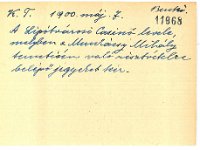 K. T. 1900. máj. 7.
Benkő.
11968
A Lipótvárosi Casinó levele,
melyben a Munkácsy Mihály
temetésén való részvételre
belépő jegyeket kér.